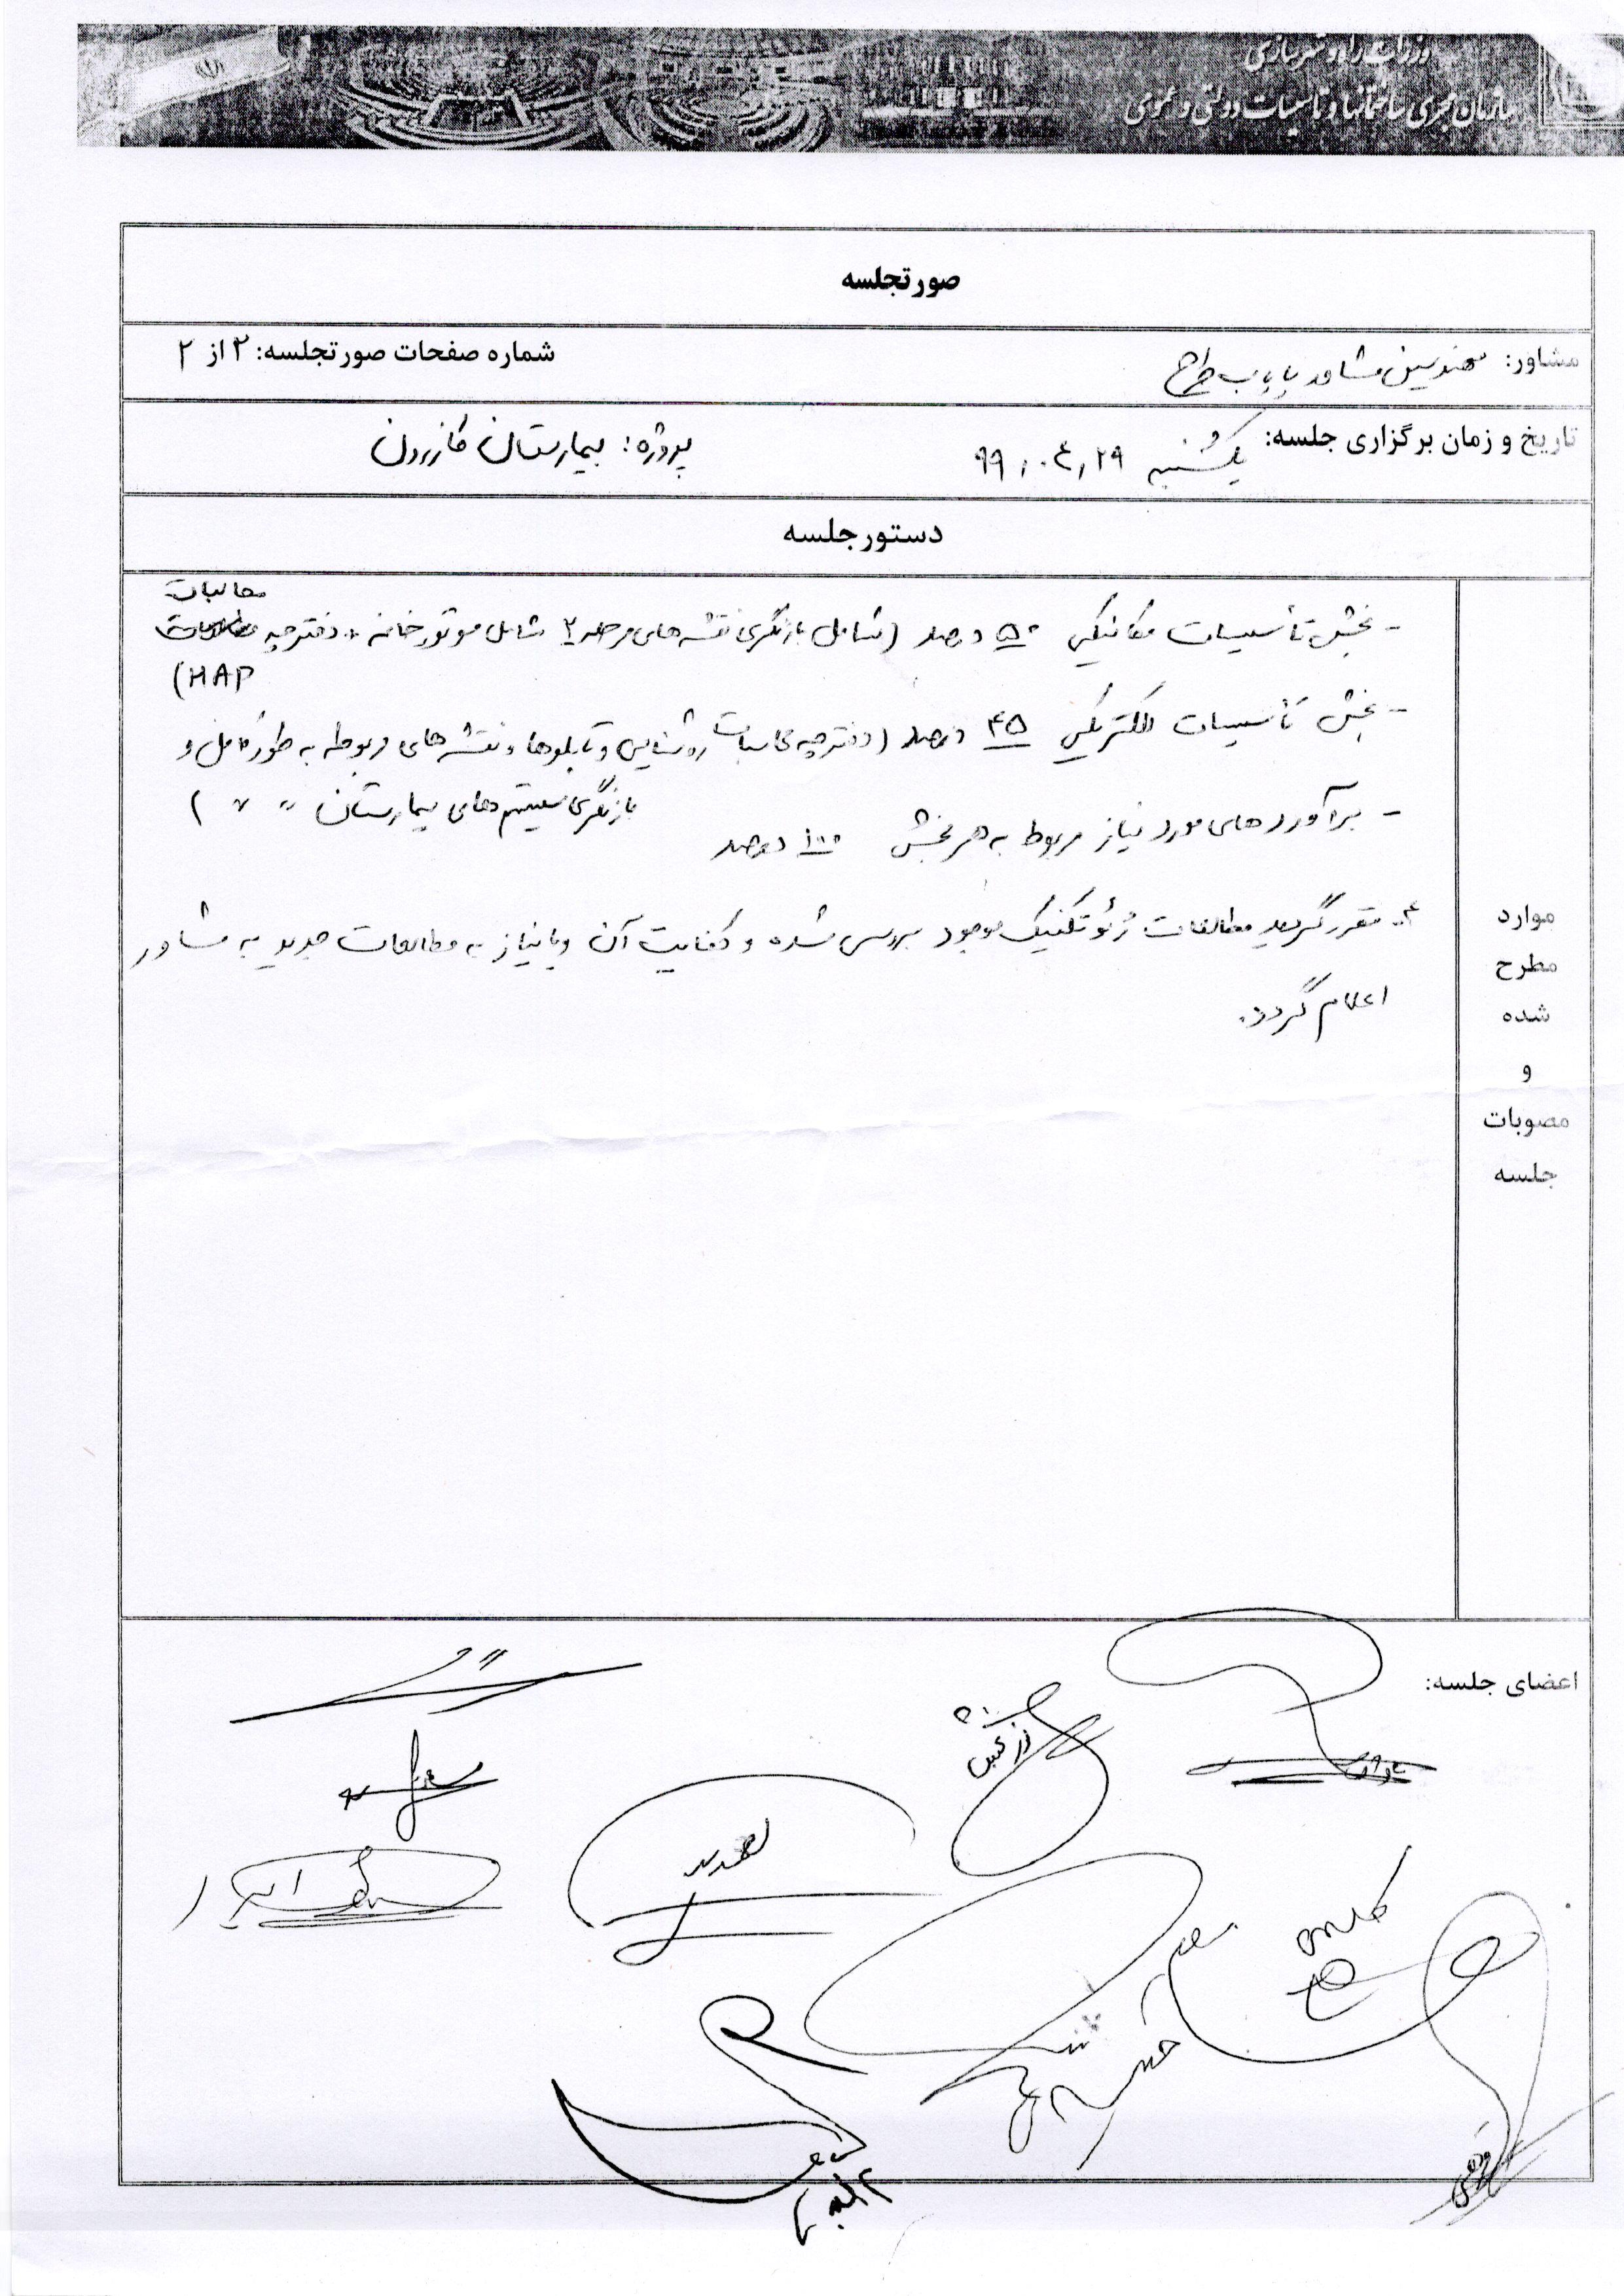 وزارت راه و شهرسازی
سازمان مجری ساختمانها و تاسیسات دولتی و عمومی
صورتجلسه
مشاور: مهندسین مشاور پایاب طرح
شماره صفحات صورتجلسه: ۲ از ۲
تاریخ و زمان برگزاری جلسه: یکشنبه ۹۹,۰۴,۲۹
پروژه: بیمارستان کازرون
دستور جلسه
محاسبات
- بخش تأسیسات مکانیکی ۵۰ درصد (شامل بازنگری نقشه های مرحله ۲ شامل موتورخانه + دفترچه
HAP)
- بخش تأسیسات الکتریکی ۴۵ درصد (دفترچه محاسبات روشنایی و تابلوها و نقشه های مربوطه به طور کامل و
بازنگری سیستم های بیمارستان 〃 〃 )
- برآوردهای مورد نیاز مربوط به هر بخش ۱۰۰ درصد
۴- مقرر گردید مطالعات ژئوتکنیک موجود بررسی شده و کفایت آن و یا نیاز به مطالعات جدید به مشاور
اعلام گردد.
موارد
مطرح
شده
و
مصوبات
جلسه
اعضای جلسه: